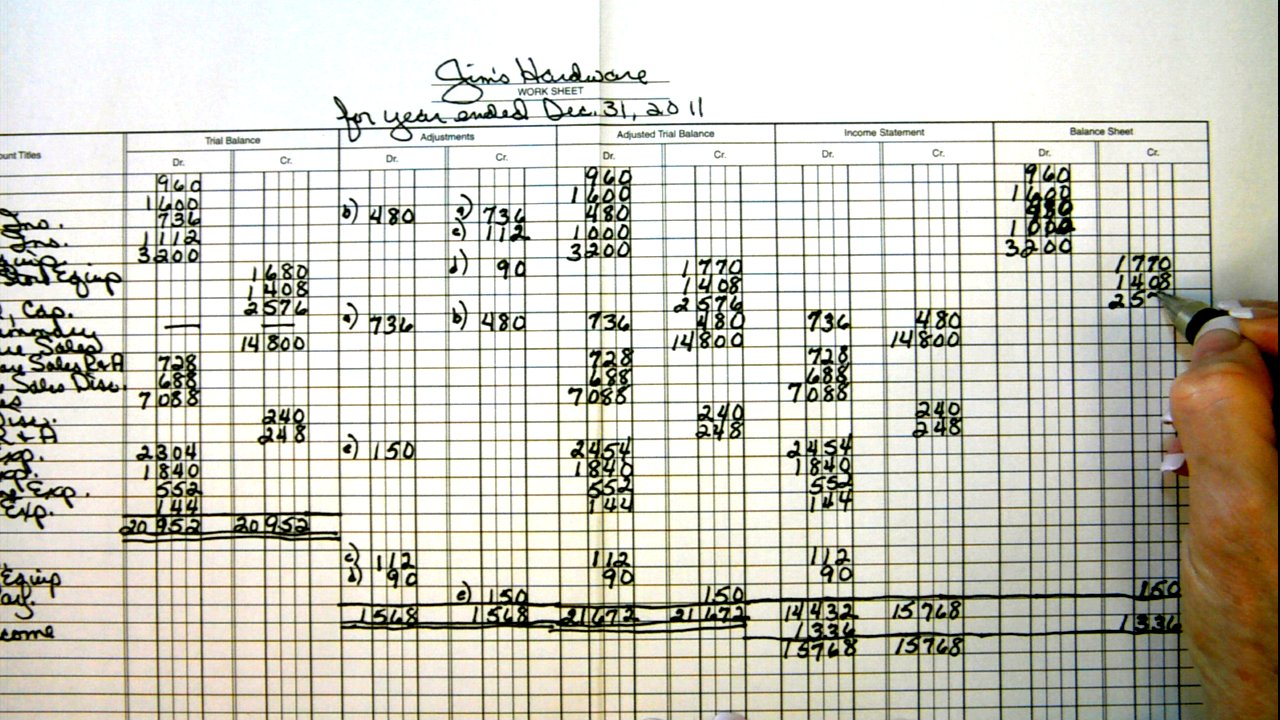 Jim's Hardware
WORK SHEET
for year ended Dec. 31, 2011
Trial Balance Adjustments Adjusted Trial Balance Income Statement Balance Sheet
Titles Dr. Cr. Dr. Cr. Dr. Cr. Dr. Cr. Dr. Cr.
960 960 960
1600 1600 1600
Ins. 736 b) 480 a) 736 480
Ins. 1112 c) 112 1000 1000
3200 3200 3200
Equip 1680 d) 90 1770 1770
1408 1408 1408
Cap. 2576 2576
— — a) 736 b) 480 736 480 736 480
Sales 14800 14800 14800
Sales R+A 728 728 728
Sales Disc. 688 688 688
7088 7088 7088
240 240 240
R + A 248 248 248
Exp. 2304 e) 150 2454 2454
1840 1840 1840
Exp. 552 552 552
Exp. 144 144 144
20952 20952
c) 112 112 112
Equip d) 90 90 90
e) 150 150 150
1568 1568 21672 21672 14432 15768
1336 1336
15768 15768